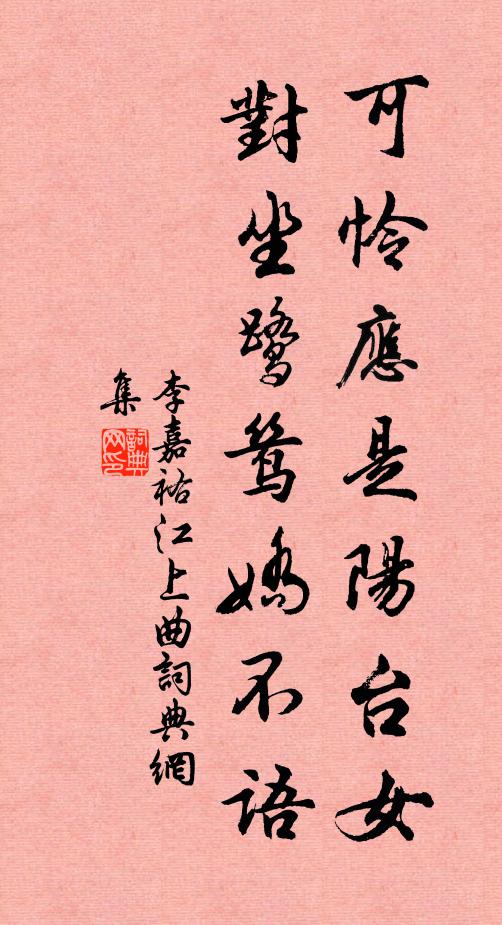 可怜應是陽台女
對坐鷺鷥嬌不語
李嘉祐江上曲詞典網
集
詞典网印